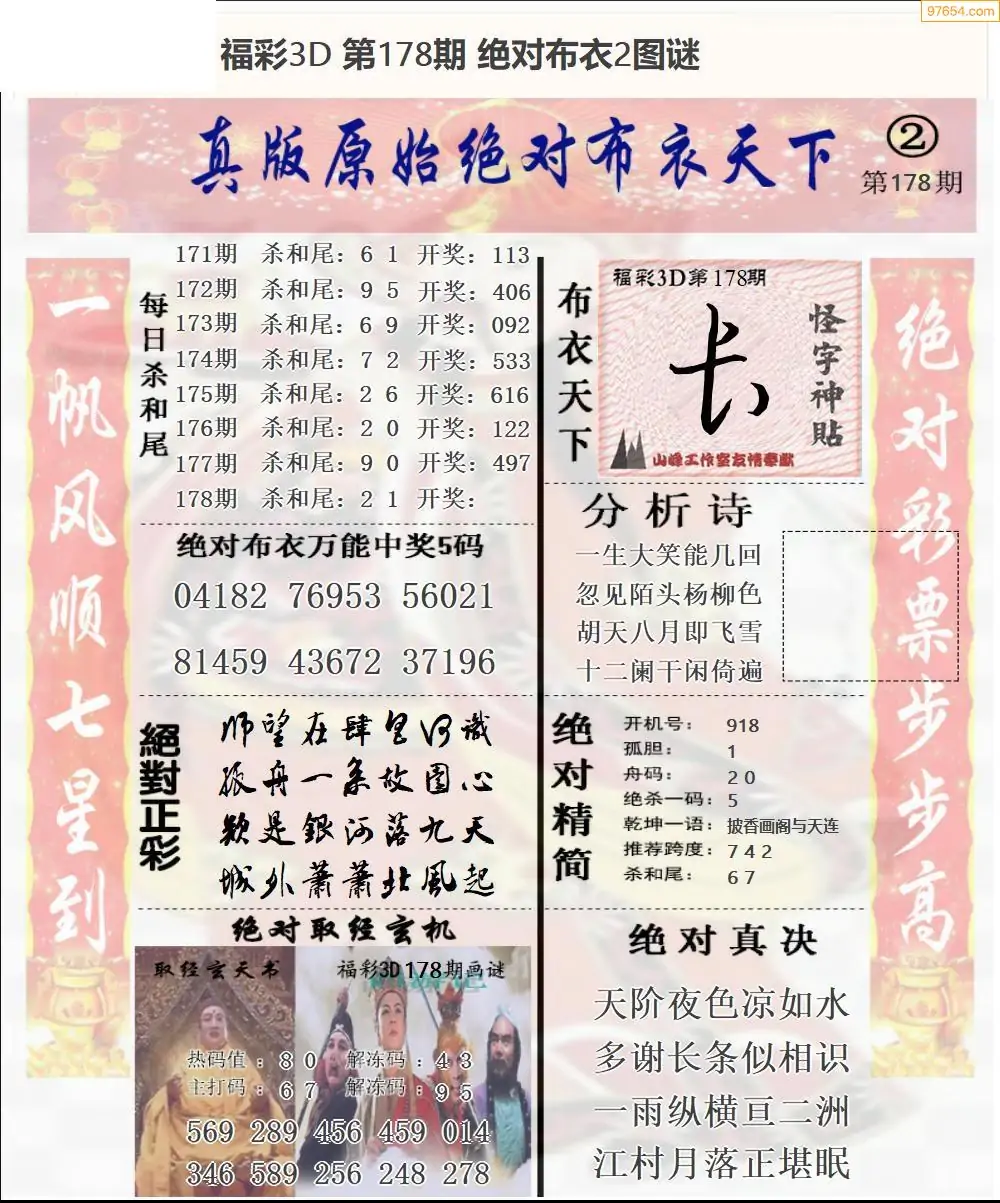 97654.com
福彩3D 第178期 绝对布衣2图谜
真版原始绝对布衣天下
②
第178期
一帆风顺七星到
每日杀和尾
171期 杀和尾：6 1 开奖：113
172期 杀和尾：9 5 开奖：406
173期 杀和尾：6 9 开奖：092
174期 杀和尾：7 2 开奖：533
175期 杀和尾：2 6 开奖：616
176期 杀和尾：2 0 开奖：122
177期 杀和尾：9 0 开奖：497
178期 杀和尾：2 1 开奖：
绝对布衣万能中奖5码
04182 76953 56021
81459 43672 37196
絕對正彩
师望在肆皂河识
孤舟一系故园心
疑是銀河落九天
城外萧萧北風起
绝对取经玄机
取经玄天书
福彩3D178期画谜
热码值：8 0 解冻码：4 3
主打码：6 7 解冻码：9 5
569 289 456 459 014
346 589 256 248 278
布衣天下
福彩3D第178期
怪字神貼
山峰工作室友情奉献
分析诗
一生大笑能几回
忽见陌头杨柳色
胡天八月即飞雪
十二阑干闲倚遍
绝对精简
开机号： 918
孤胆： 1
舟码： 2 0
绝杀一码：5
乾坤一语：披香画阁与天连
推荐跨度：7 4 2
杀和尾： 6 7
绝对真决
天阶夜色凉如水
多谢长条似相识
一雨纵横亘二洲
江村月落正堪眠
绝对彩票步步高